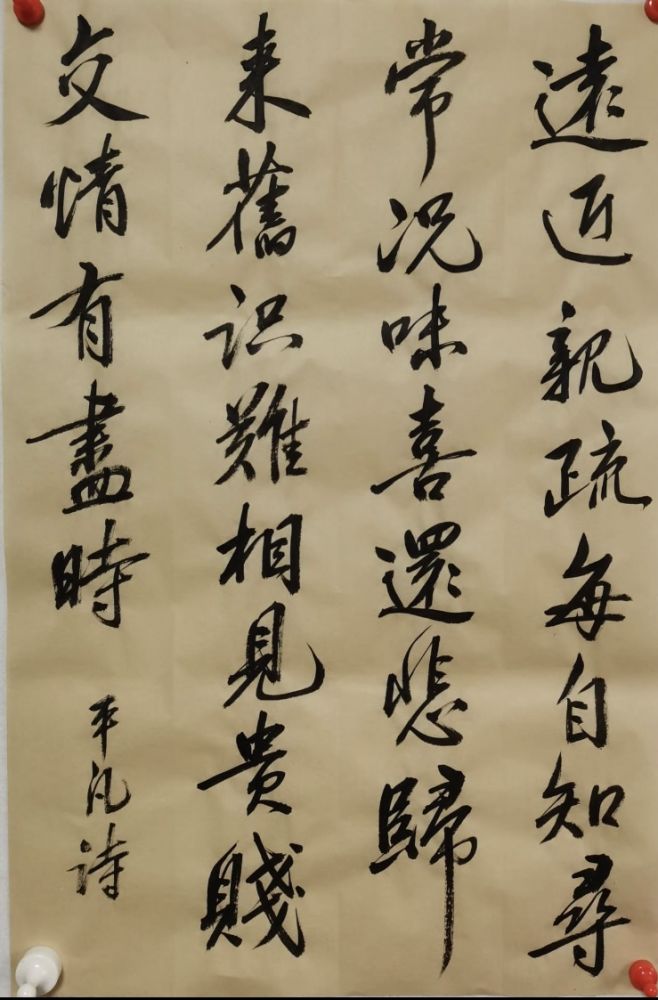 遠近親疏每自知尋
常况味喜還悲歸
来舊识難相見贵賤
交情有盡時
平凡诗